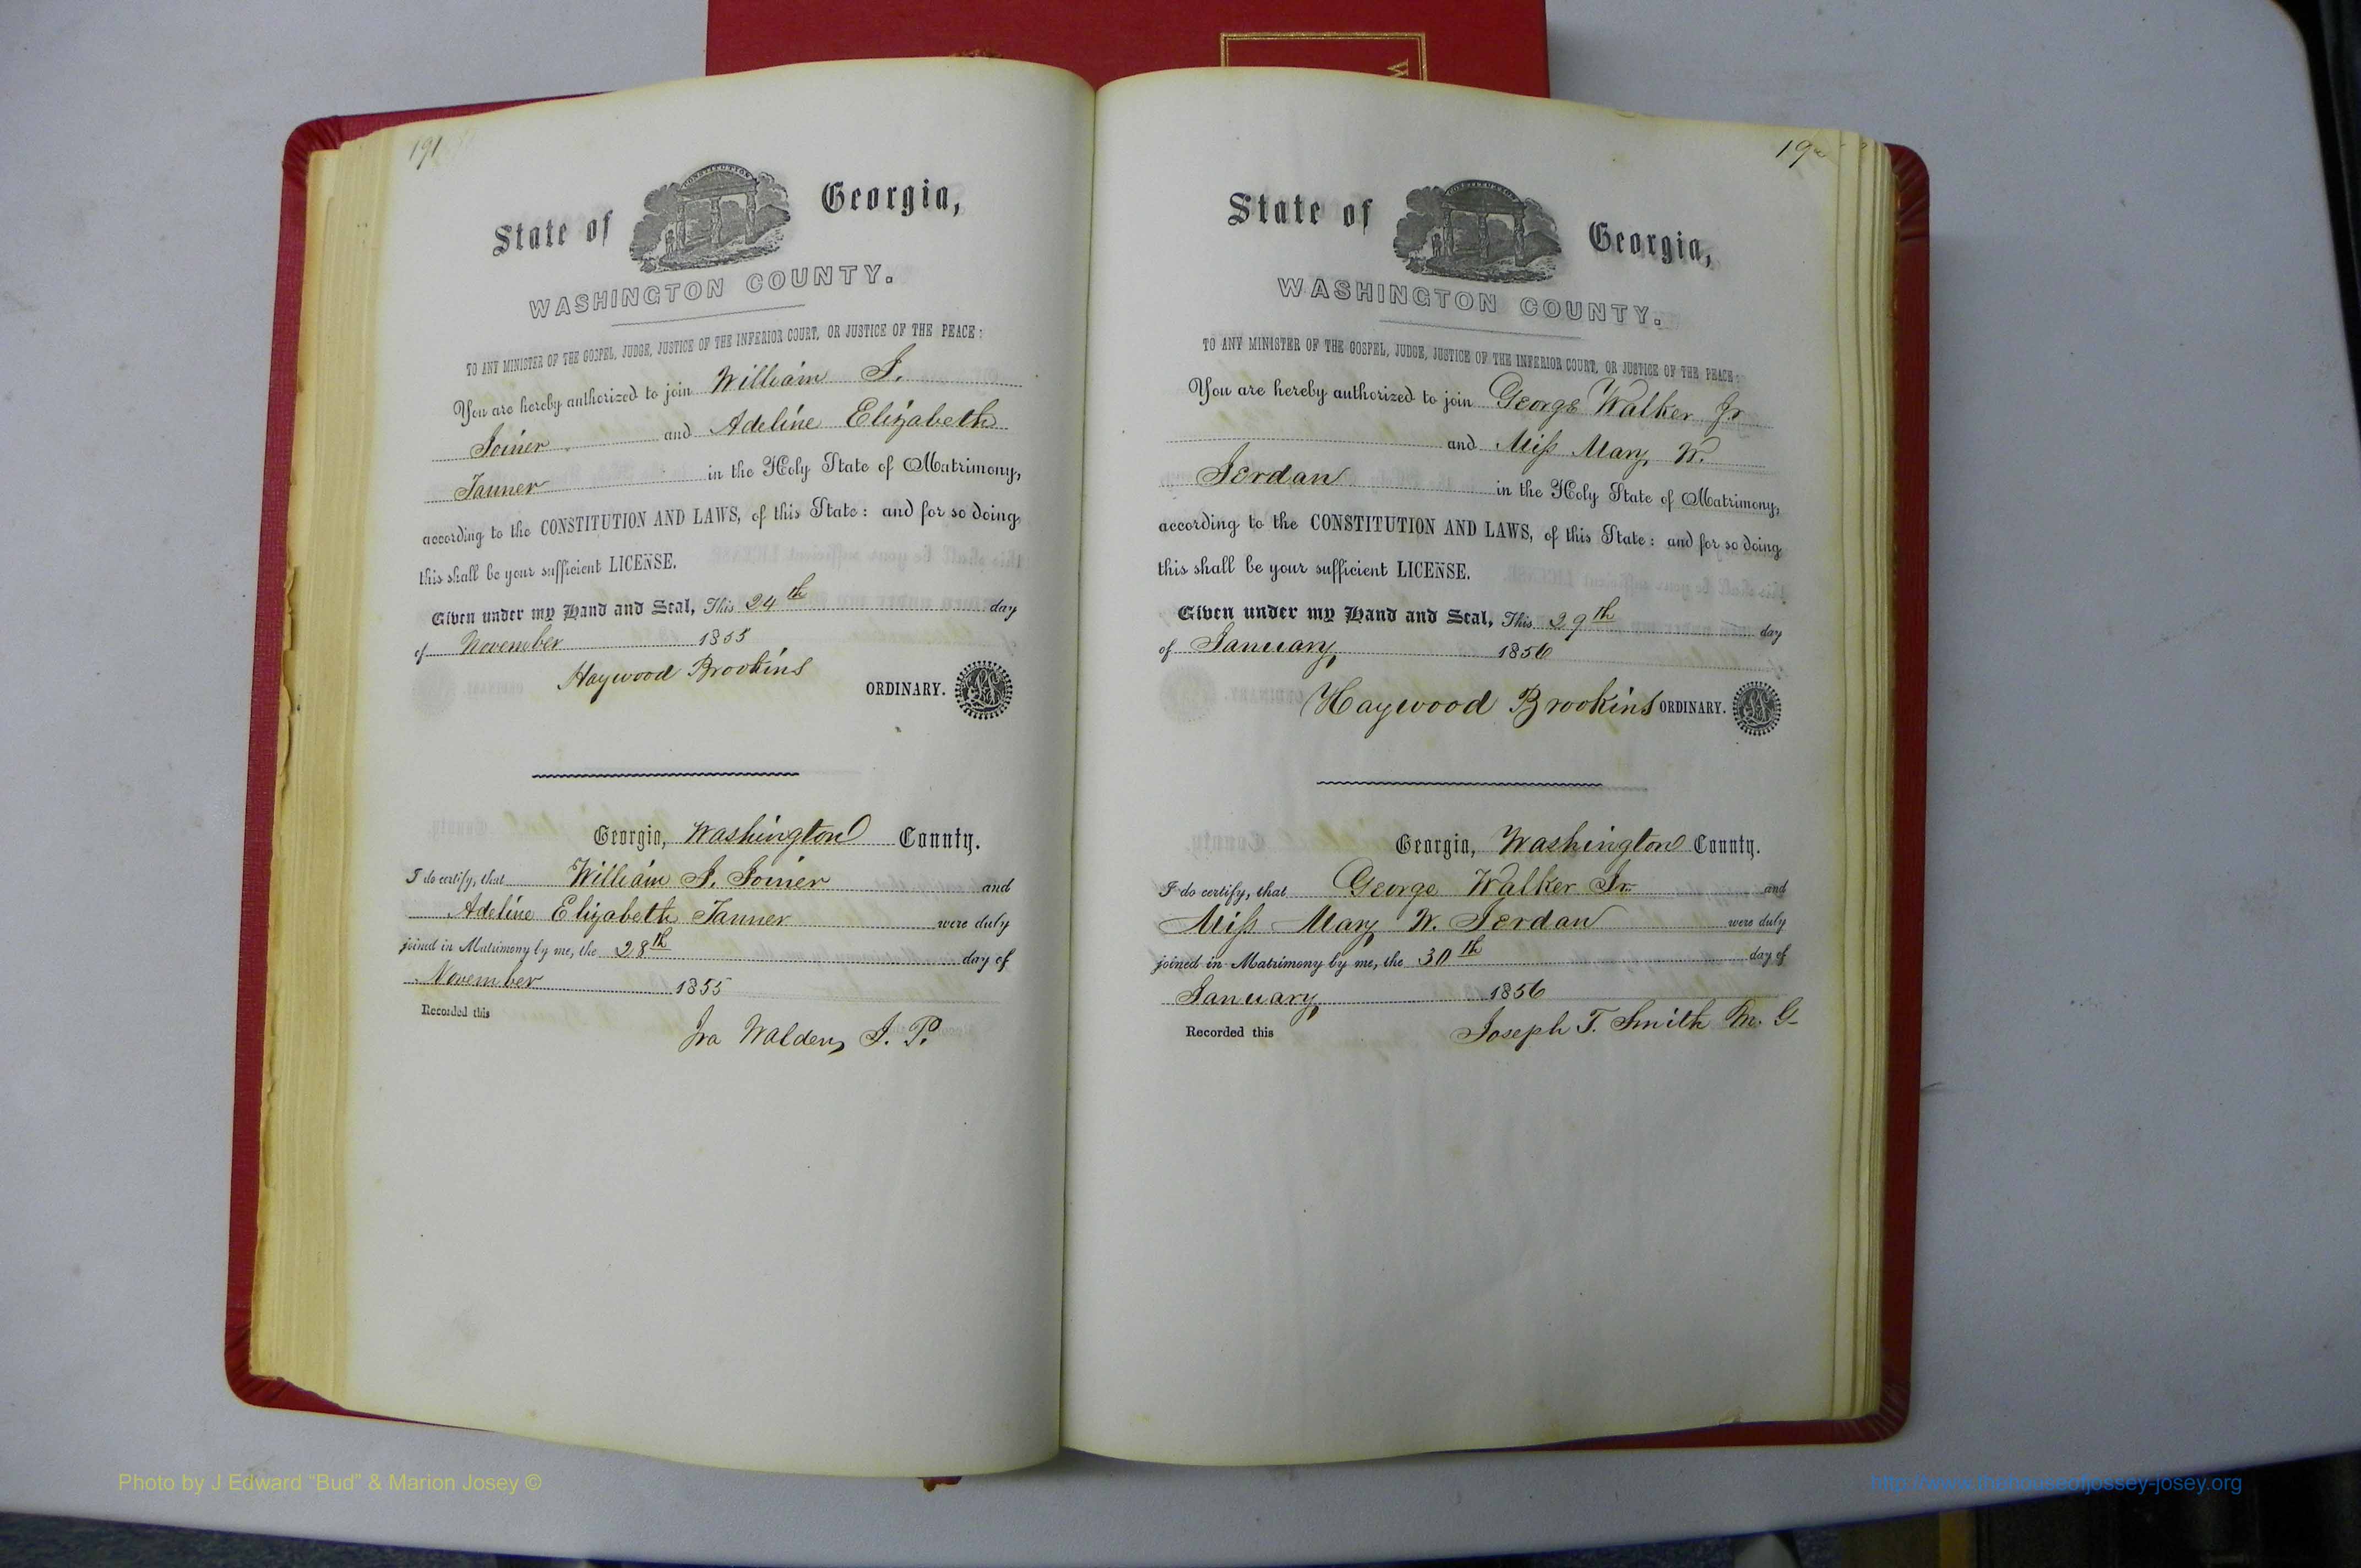 191
CONSTITUTION
State of Georgia,
WASHINGTON COUNTY.
TO ANY MINISTER OF THE GOSPEL, JUDGE, JUSTICE OF THE INFERIOR COURT, OR JUSTICE OF THE PEACE:
You are hereby authorized to join William J.
Joiner and Adeline Elizabeth
Tanner in the Holy State of Matrimony,
according to the CONSTITUTION AND LAWS, of this State: and for so doing,
this shall be your sufficient LICENSE.
Given under my Hand and Seal, This 24th day
of November 1855
Haywood Brookins
ORDINARY.
Georgia, Washington County.
I do certify, that William J. Joiner and
Adeline Elizabeth Tanner were duly
joined in Matrimony by me, the 28th day of
November 1855
Recorded this
Ira Walden, J. P.
CONSTITUTION
State of Georgia,
WASHINGTON COUNTY.
TO ANY MINISTER OF THE GOSPEL, JUDGE, JUSTICE OF THE INFERIOR COURT, OR JUSTICE OF THE PEACE:
You are hereby authorized to join George Walker Jr
and Miss Mary W.
Jordan in the Holy State of Matrimony,
according to the CONSTITUTION AND LAWS, of this State: and for so doing
this shall be your sufficient LICENSE.
Given under my Hand and Seal, This 29th day
of January, 1856
Haywood Brookins ORDINARY.
Georgia, Washington County.
I do certify, that George Walker Jr. and
Miss Mary W. Jordan were duly
joined in Matrimony by me, the 30th day of
January, 1856
Recorded this Joseph T. Smith M. G
Photo by J Edward "Bud" & Marion Josey ©
http://www.thehouseofjossey-josey.org